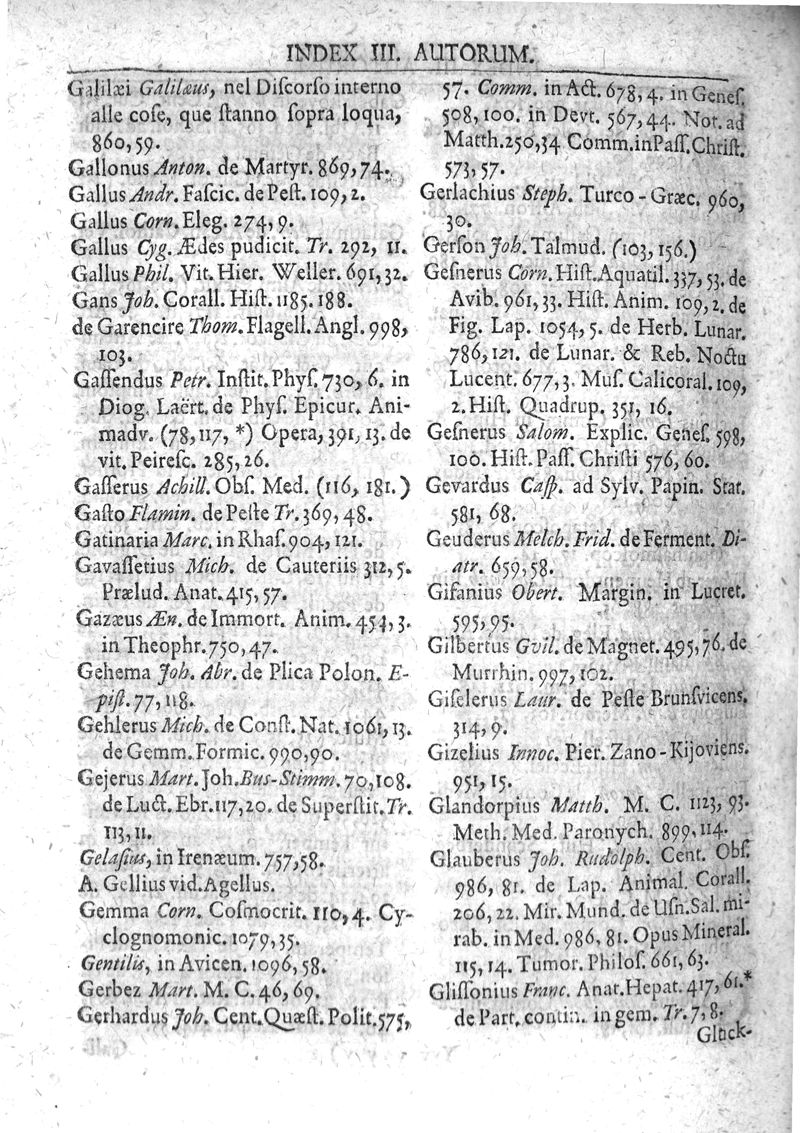 INDEX III. AUTORUM.
Galilæi Galilæus, nel Diſcorſo interno
alle coſe, que ſtanno ſopra loqua,
860,59.
Gallonus Anton. de Martyr. 869,74.
Gallus Andr. Faſcic. de Peſt. 109,2.
Gallus Corn. Eleg. 274,9.
Gallus Cyg. Ædes pudicit. Tr. 292, 11.
Gallus Phil. Vit. Hier. Weller. 691,32.
Gans Joh. Corall. Hiſt. 1185.188.
de Garencire Thom. Flagell. Angl. 998,
103.
Gaſſendus Petr. Inſtit. Phyſ. 730, 6. in
Diog. Laërt. de Phyſ. Epicur. Ani-
madv. (78,117, *) Opera, 391, 13. de
vit. Peireſc. 285,26.
Gaſſerus Achill. Obſ. Med. (116, 181.)
Gaſto Flamin. de Peſte Tr. 369, 48.
Gatinaria Marc. in Rhaſ. 904, 121.
Gavaſſetius Mich. de Cauteriis 312,5.
Prælud. Anat. 415,57.
Gazæus Æn. de Immort. Anim. 454,3.
in Theophr. 750,47.
Gehema Joh. Abr. de Plica Polon. E-
piſt. 77,118.
Gehlerus Mich. de Conſt. Nat. 1061,13.
de Gemm. Formic. 990,90.
Gejerus Mart. Joh. Bus-Stimm. 70,108.
de Luct. Ebr. 117,20. de Superſtit. Tr.
113,11.
Gelaſius, in Irenæum. 757,58.
A. Gellius vid. Agellus.
Gemma Corn. Coſmocrit. 110,4. Cy-
clognomonic. 1079,35.
Gentilis, in Avicen. 1096,58.
Gerbez Mart. M. C. 46,69.
Gerhardus Joh. Cent. Quæſt. Polit. 575,
57. Comm. in Act. 678,4. in Geneſ.
508,100. in Devt. 567,44. Not. ad
Matth. 250,34 Comm. in Paſſ. Chriſt.
573,57.
Gerlachius Steph. Turco-Græc. 960,
30.
Gerſon Joh. Talmud. (103,156.)
Geſnerus Corn. Hiſt. Aquatil. 337, 53. de
Avib. 961,33. Hiſt. Anim. 109,2. de
Fig. Lap. 1054,5. de Herb. Lunar.
786,121. de Lunar. & Reb. Noctu
Lucent. 677,3. Muſ. Calicoral. 109,
2. Hiſt. Quadrup. 351, 16.
Geſnerus Salom. Explic. Geneſ. 598,
100. Hiſt. Paſſ. Chriſti 576, 60.
Gevardus Caſp. ad Sylv. Papin. Stat.
581, 68.
Geuderus Melch. Frid. de Ferment. Di-
atr. 659,58.
Gifanius Obert. Margin. in Lucret.
595,95.
Gilbertus Gvil. de Magnet. 495,76. de
Murrhin. 997,102.
Giſelerus Laur. de Peſte Brunſvicens.
314,9.
Gizelius Innoc. Pier. Zano-Kijoviens.
951,15.
Glandorpius Matth. M. C. 1123, 93.
Meth. Med. Paronych. 899,114.
Glauberus Joh. Rudolph. Cent. Obſ.
986, 81. de Lap. Animal. Corall.
206,22. Mir. Mund. de Uſn. Sal. mi-
rab. in Med. 986, 81. Opus Mineral.
115,14. Tumor. Philoſ. 661,63.
Gliſſonius Franc. Anat. Hepat. 417,61.*
de Part. contin. in gem. Tr. 7,8.
Glück-